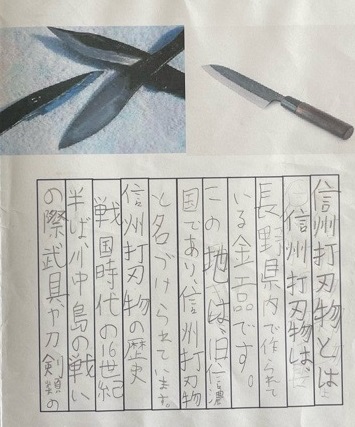 信州打刃物とは
信州打刃物は、
長野県内で作られて
いる金工品です。
この地は、旧信濃
国であり、信州打刃物
と名づけられています。
信州打刃物の歴史
戦国時代の16世紀
半ば、川中島の戦い
の際武具や刀剣類の